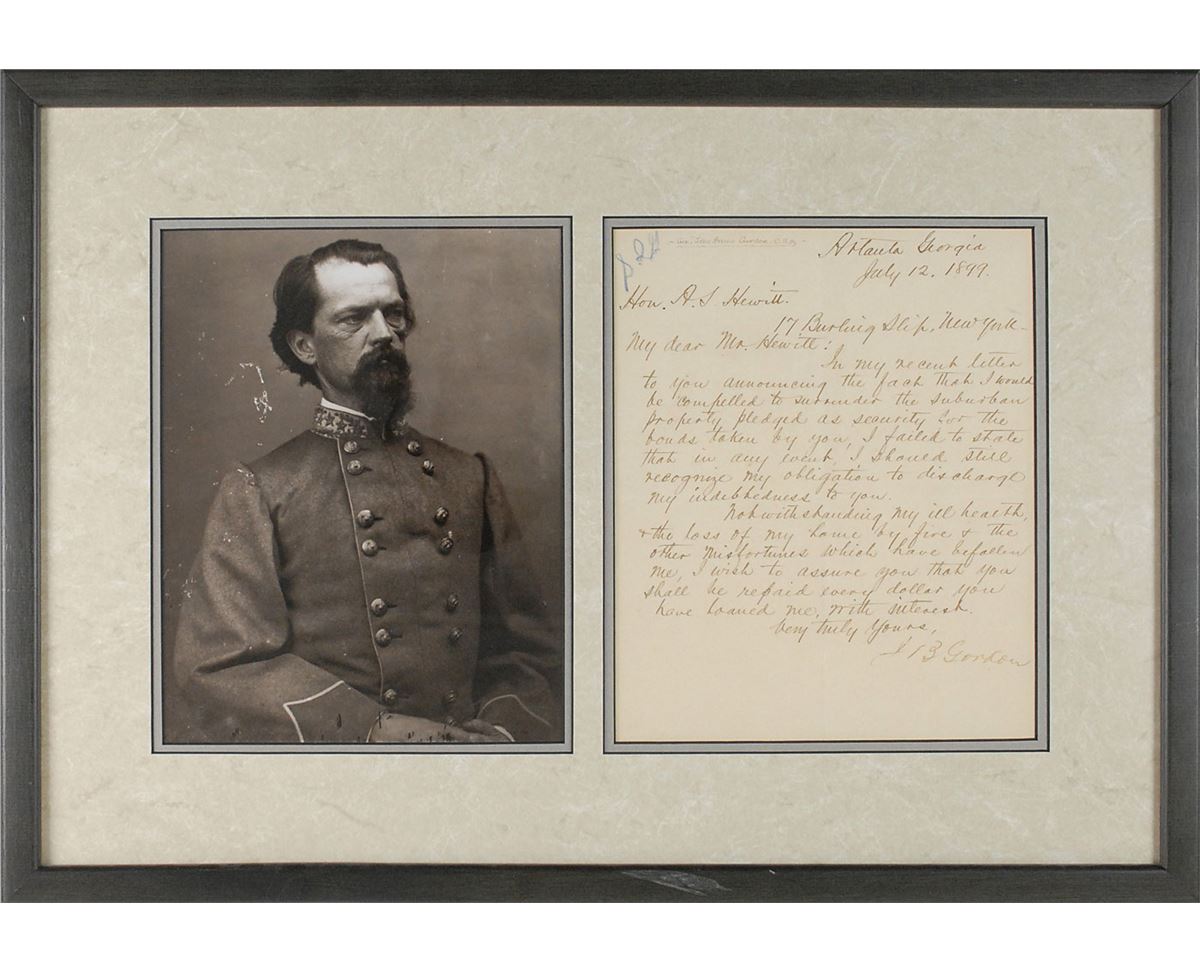 Gen. John Brown Gordon. C.S.A.
Artanta Georgia
July 12. 1899.
Hon. A. S. Hewitt.
17 Burling Slip, New York-
My dear Mr. Hewitt:
In my recent letter
to you announcing the fact that I would
be compelled to surrender the suburban
property pledged as security for the
bonds taken by you, I failed to state
that in any event I should still
recognize my obligation to discharge
my indebtedness to you.
Notwithstanding my ill health,
& the loss of my home by fire & the
other misfortunes which have befallen
me, I wish to assure you that you
shall be repaid every dollar you
have loaned me, with interest.
Very truly yours,
J B Gordon